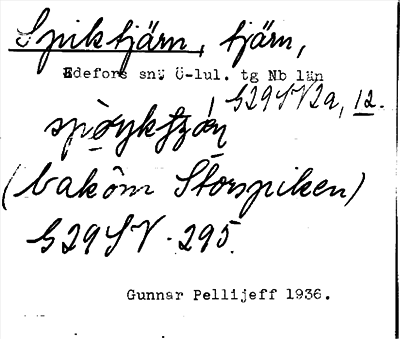 Spiktjärn, tjärn,
Edefors sn; Ö-lul. tg Nb län
G29SV2a, 12.
(bakom Storspiken)
G29SV. 295.
Gunnar Pellijeff 1936.